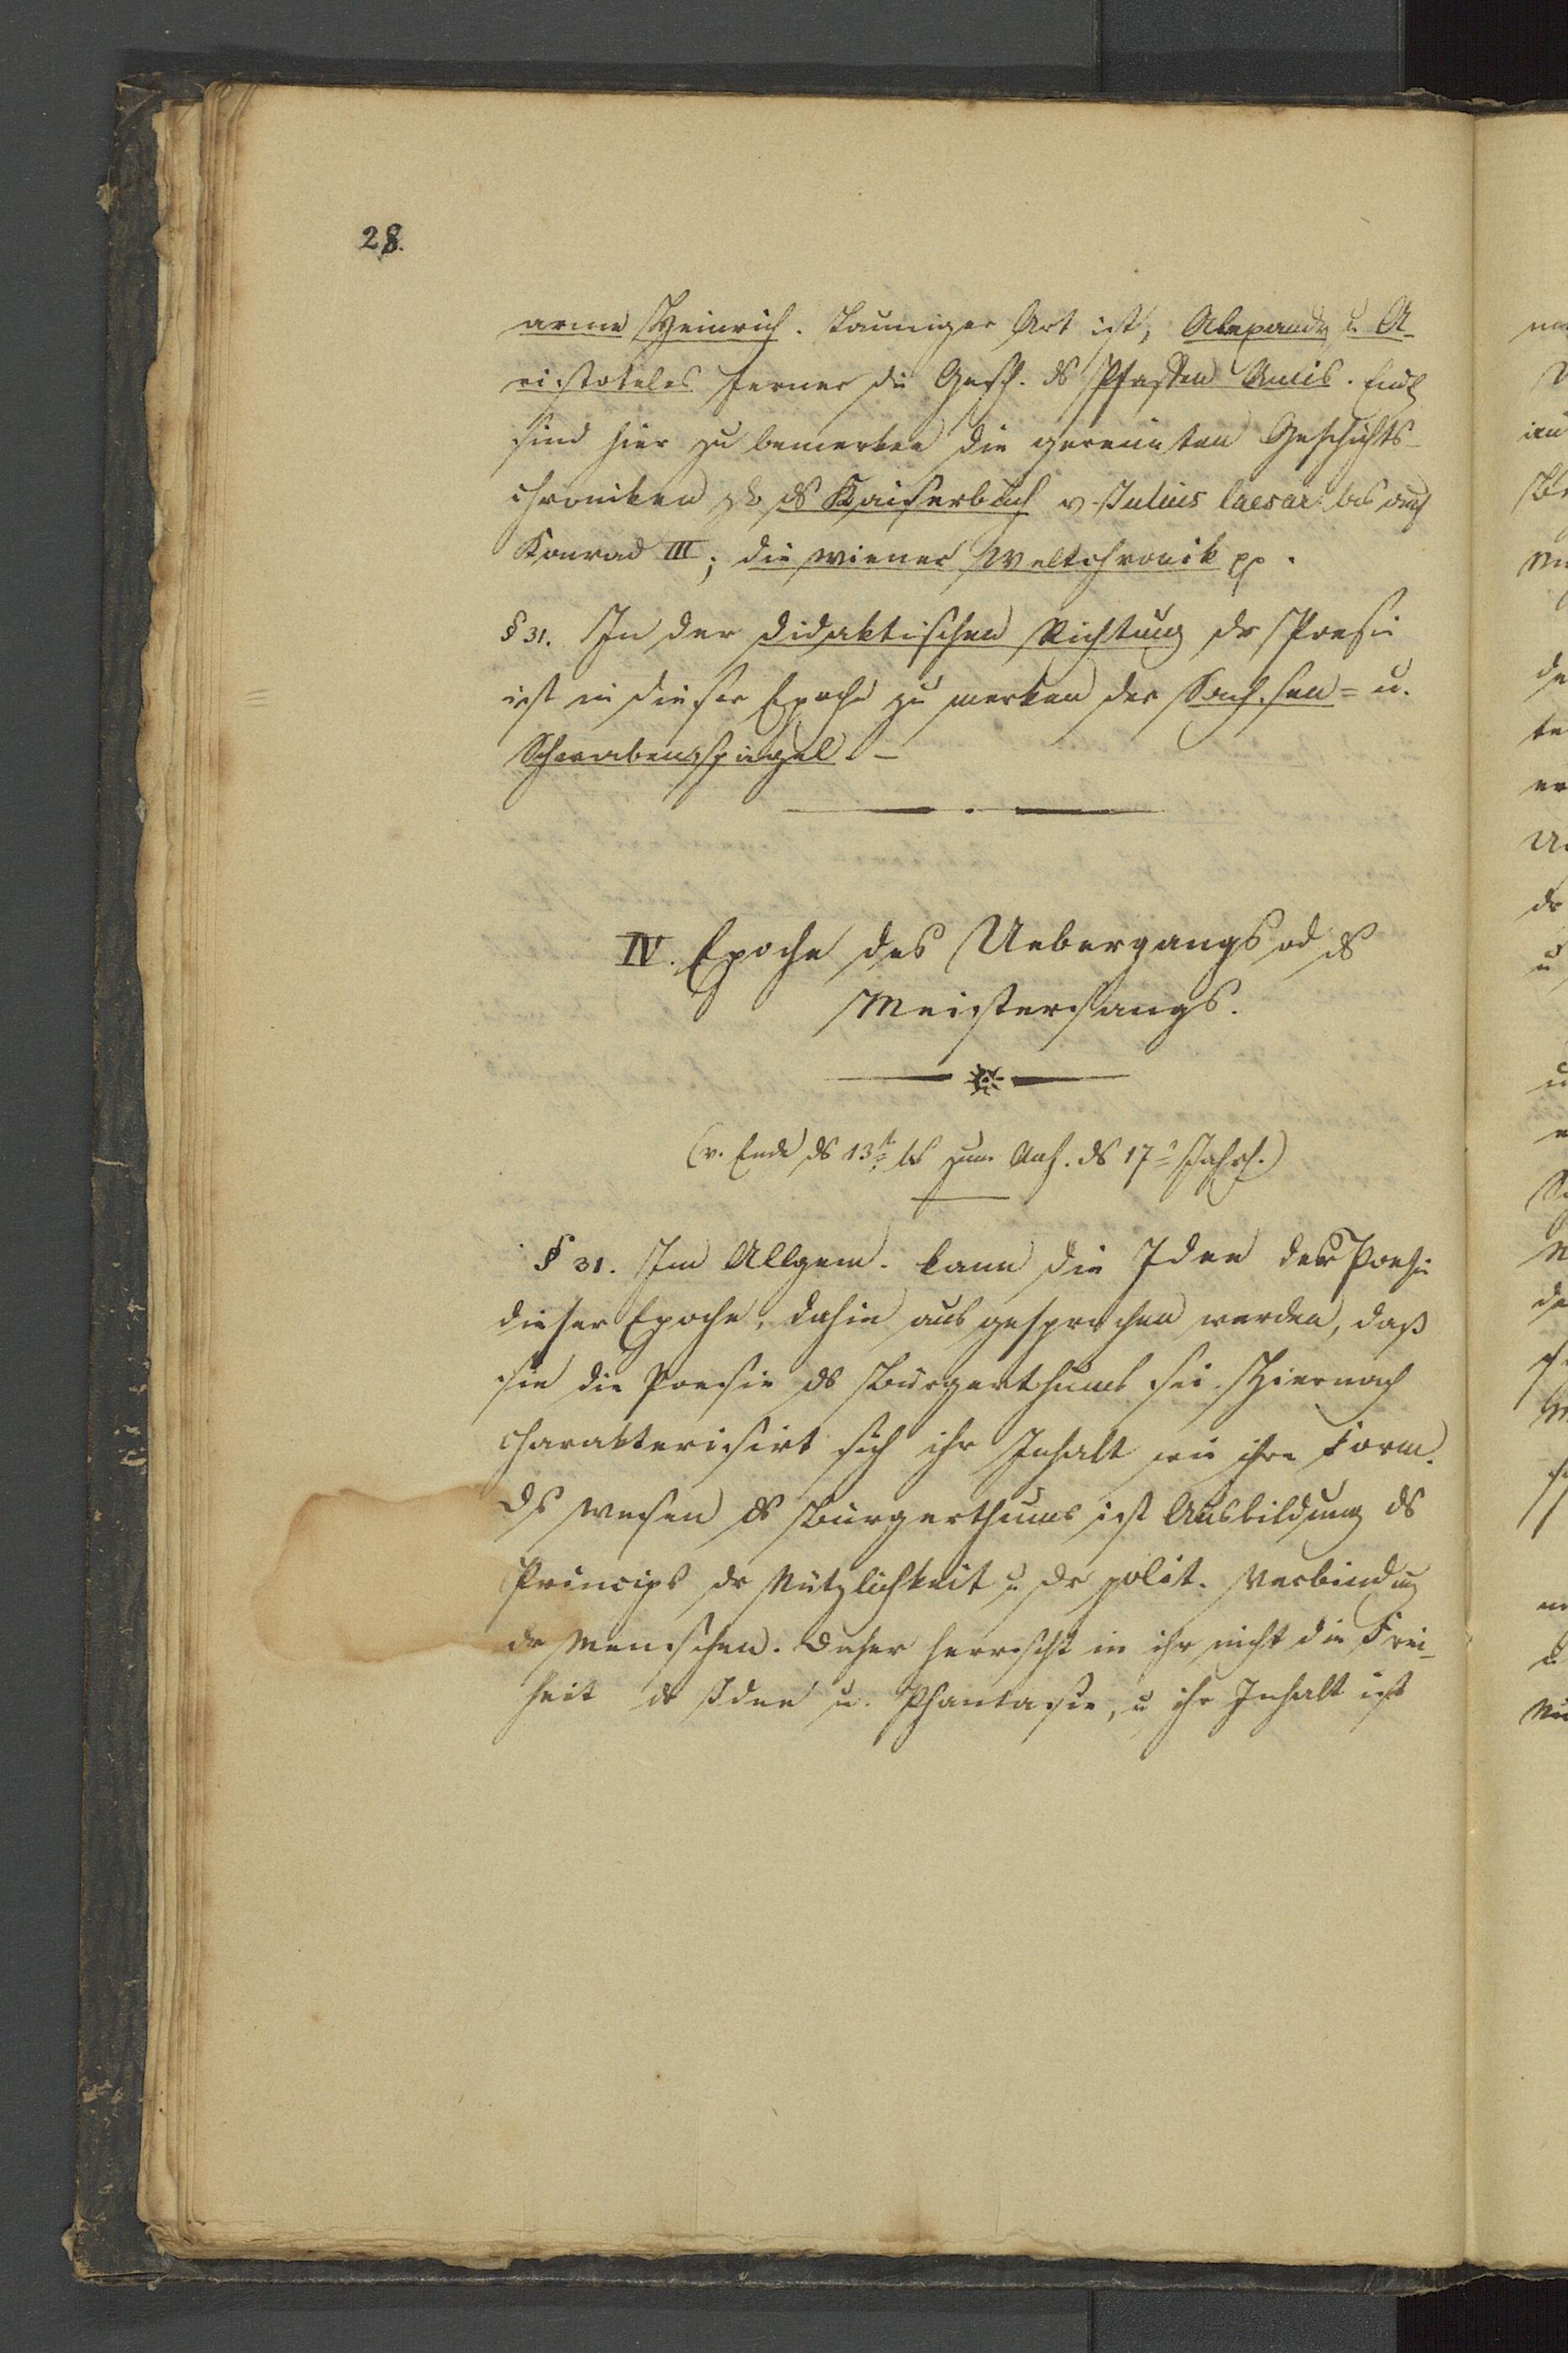 28.
arme Heinrich. Launiger Art ist, Alexander u. A-
ristoteles ferner die Gesch. ds Pfaffen Amis. Endl
sind hier zu bemerken die gereimten Geschichts-
chroniken zb. ds Kaiserbuch v. Julius Caesar bis auf
Konrad III; die wiener Weltchronik pp.
§ 31. In der didaktischen Richtung dr Poesie
ist in dieser Epoche zu merken der Sachsen= u.
Schwabenspiegel. –
IV. Epoche des Uebergangs od ds
Meistersangs.
(v. Ende ds 13t bis zum Anf. ds 17t Jahrh.)
§ 31. Im Allgem. kann die Idee der Poesie
dieser Epoche, dahin ausgesprochen werden, daß
sie die Poesie ds Bürgerthums sei. Hiernach
charakterisirt sich ihr Inhalt wie ihre Form.
Ds Wesen ds Bürgerthums ist Ausbildung ds
Princips dr Nützlichkeit u. dr polit. Verbindung
dr Menschen. Daher herrscht in ihr nicht die Frei-
heit dr Idee u. Phantasie, u ihr Inhalt ist